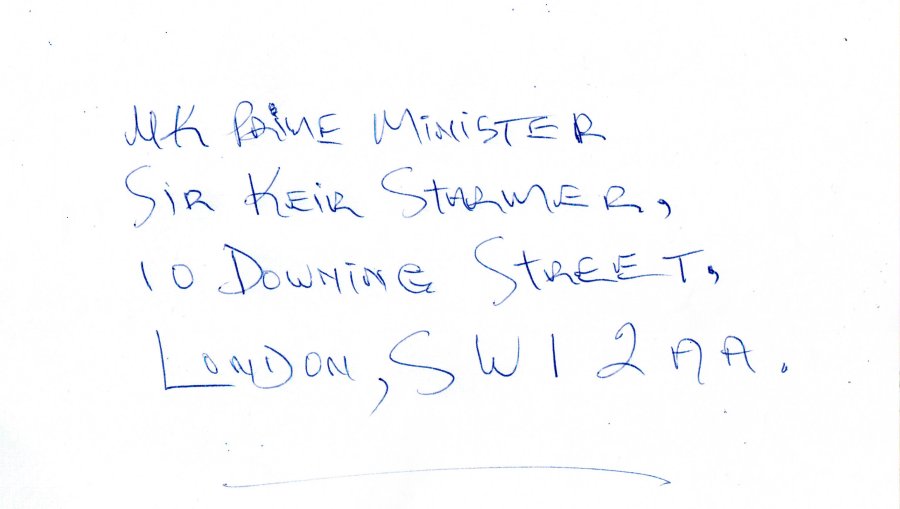 UK PRIME MINISTER
SIR KEIR STARMER,
10 DOWNING STREET,
LONDON, SW1 2AA.